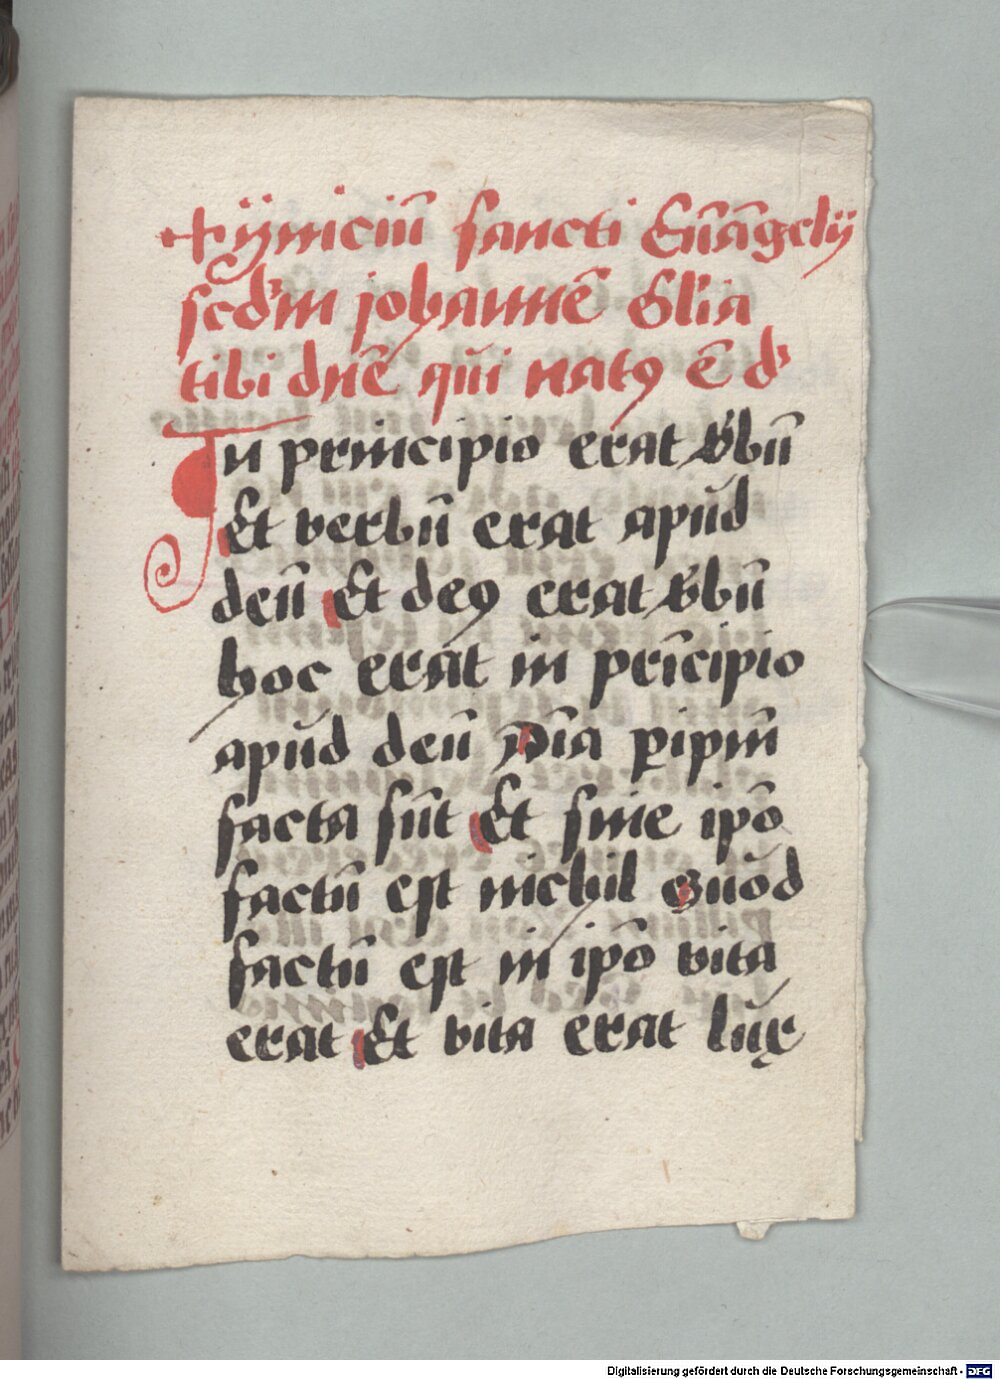 + ijniciū sancti Ewāgelij
scd'm johannē Gl'ia
tibi dn̄e qui natꝯ ē d'
In principio erat v̓bū
Et verbū erat apud
deū Et deꝯ erat v̓bū
hoc erat in prīcipio
apud deū Om̄ia ꝑ ip̄m
facta sūt Et sine ip̄o
factū est nichil Quod
factū est in ip̄o vita
erat Et vita erat lux
Digitalisierung gefördert durch die Deutsche Forschungsgemeinschaft - DFG